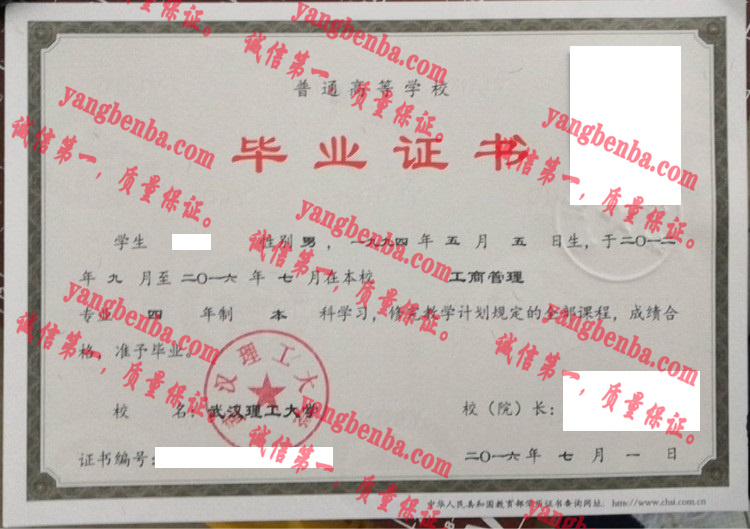 普通高等学校
毕业证书
学生 性别 男，一九九四年五月五日生，于二〇一二
年九月至二〇一六年七月在本校 工商管理
专业 四 年制 本 科学习，修完教学计划规定的全部课程，成绩合
格，准予毕业。
校 名：武汉理工大学
校（院）长：
证书编号：
二〇一六年七月一日
中华人民共和国教育部学历证书查询网址：http://www.chsi.com.cn
武汉理工大学
yangbenba.com
诚信第一，质量保证。
yangbenba.com
诚信第一，质量保证。
yangbenba.com
诚信第一，质量保证。
yangbenba.com
诚信第一，质量保证。
yangbenba.com
诚信第一，质量保证。
yangbenba.com
诚信第一，质量保证。
yangbenba.com
诚信第一，质量保证。
yangbenba.com
诚信第一，质量保证。